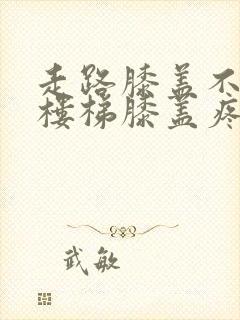 走路膝盖不
楼梯膝盖疼
武敏